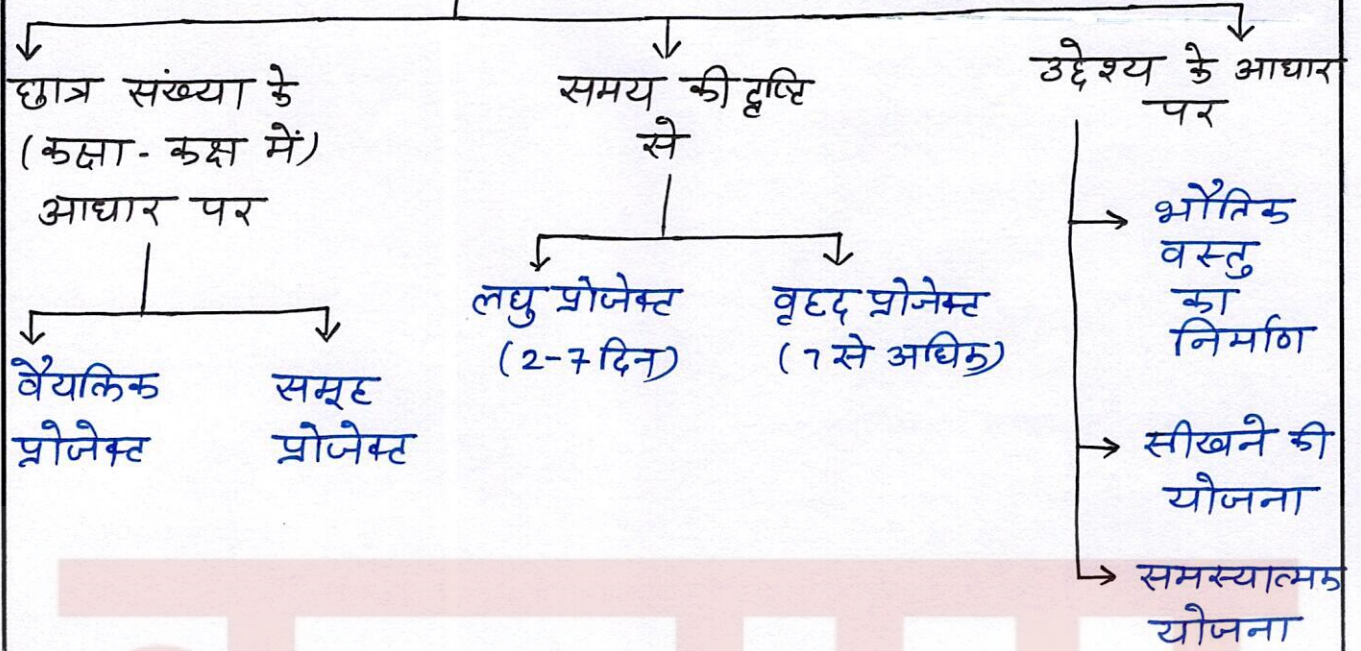 छात्र संख्या के
(कक्षा - कक्ष में)
आधार पर
वैयक्तिक
प्रोजेक्ट
समूह
प्रोजेक्ट
समय की दृष्टि
से
लघु प्रोजेक्ट
(2-7 दिन)
वृहद प्रोजेक्ट
(7 से अधिक)
उद्देश्य के आधार
पर
भौतिक
वस्तु
का
निर्माण
सीखने की
योजना
समस्यात्मक
योजना